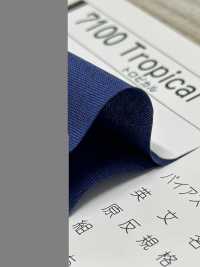 7100 Tropical
トロピカル
バイアス
英文名
原反規格
組